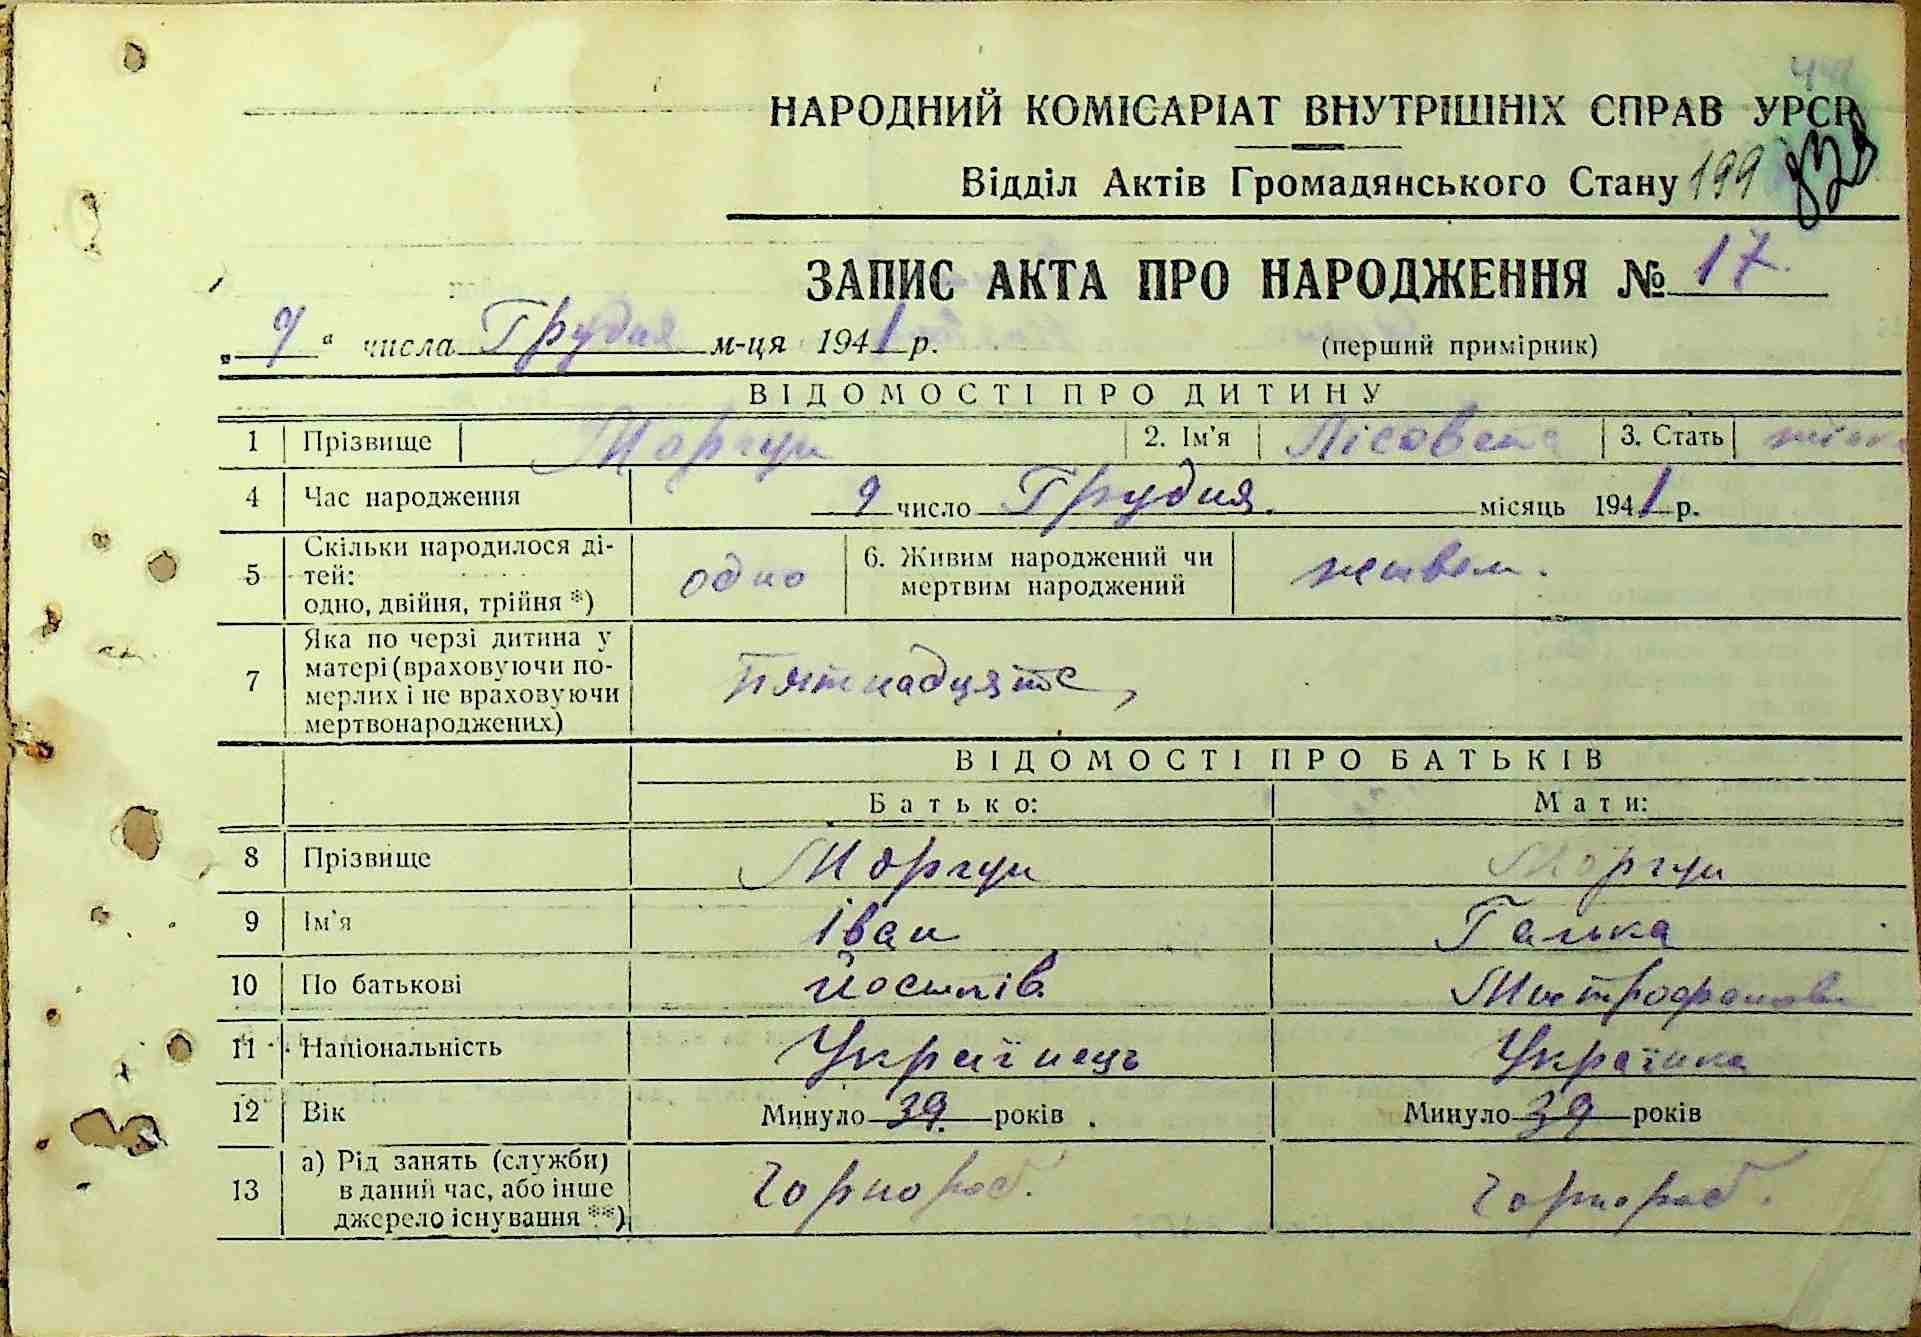 НАРОДНИЙ КОМІСАРІАТ ВНУТРІШНІХ СПРАВ УРСР
Відділ Актів Громадянського Стану 199
ЗАПИС АКТА ПРО НАРОДЖЕННЯ № 17
„9“ числа Грудня м-ця 1941 р. (перший примірник)
ВІДОМОСТІ ПРО ДИТИНУ
1 Прізвище Моргун 2. Ім'я Лісовета 3. Стать жіноч
4 Час народження 9 число Грудня. місяць 1941 р.
5 Скільки народилося ді-
тей:
одно, двійня, трійня *) одно 6. Живим народжений чи
мертвим народжений живем.
7 Яка по черзі дитина у
матері (враховуючи по-
мерлих і не враховуючи
мертвонароджених) Пятнадцяте
ВІДОМОСТІ ПРО БАТЬКІВ
Батько: Мати:
8 Прізвище Моргун Моргун
9 Ім'я Іван Галька
10 По батькові Йосипів. Митрофанов
11 Національність Українець Українка
12 Вік Минуло 39 років Минуло 39 років
13 а) Рід занять (служби)
в даний час, або інше
джерело існування **) Чорнороб. Чорнороб.